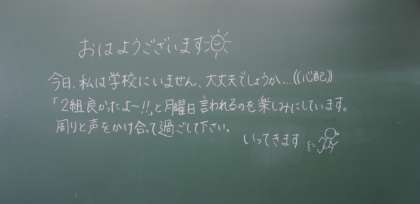 おはようございます
今日、私は学校にいません。大丈夫でしょうか…((心配))
「2組良かったよ〜!!」と月曜日言われるのを楽しみにしています。
周りと声をかけ合って過ごして下さい。
いってきます